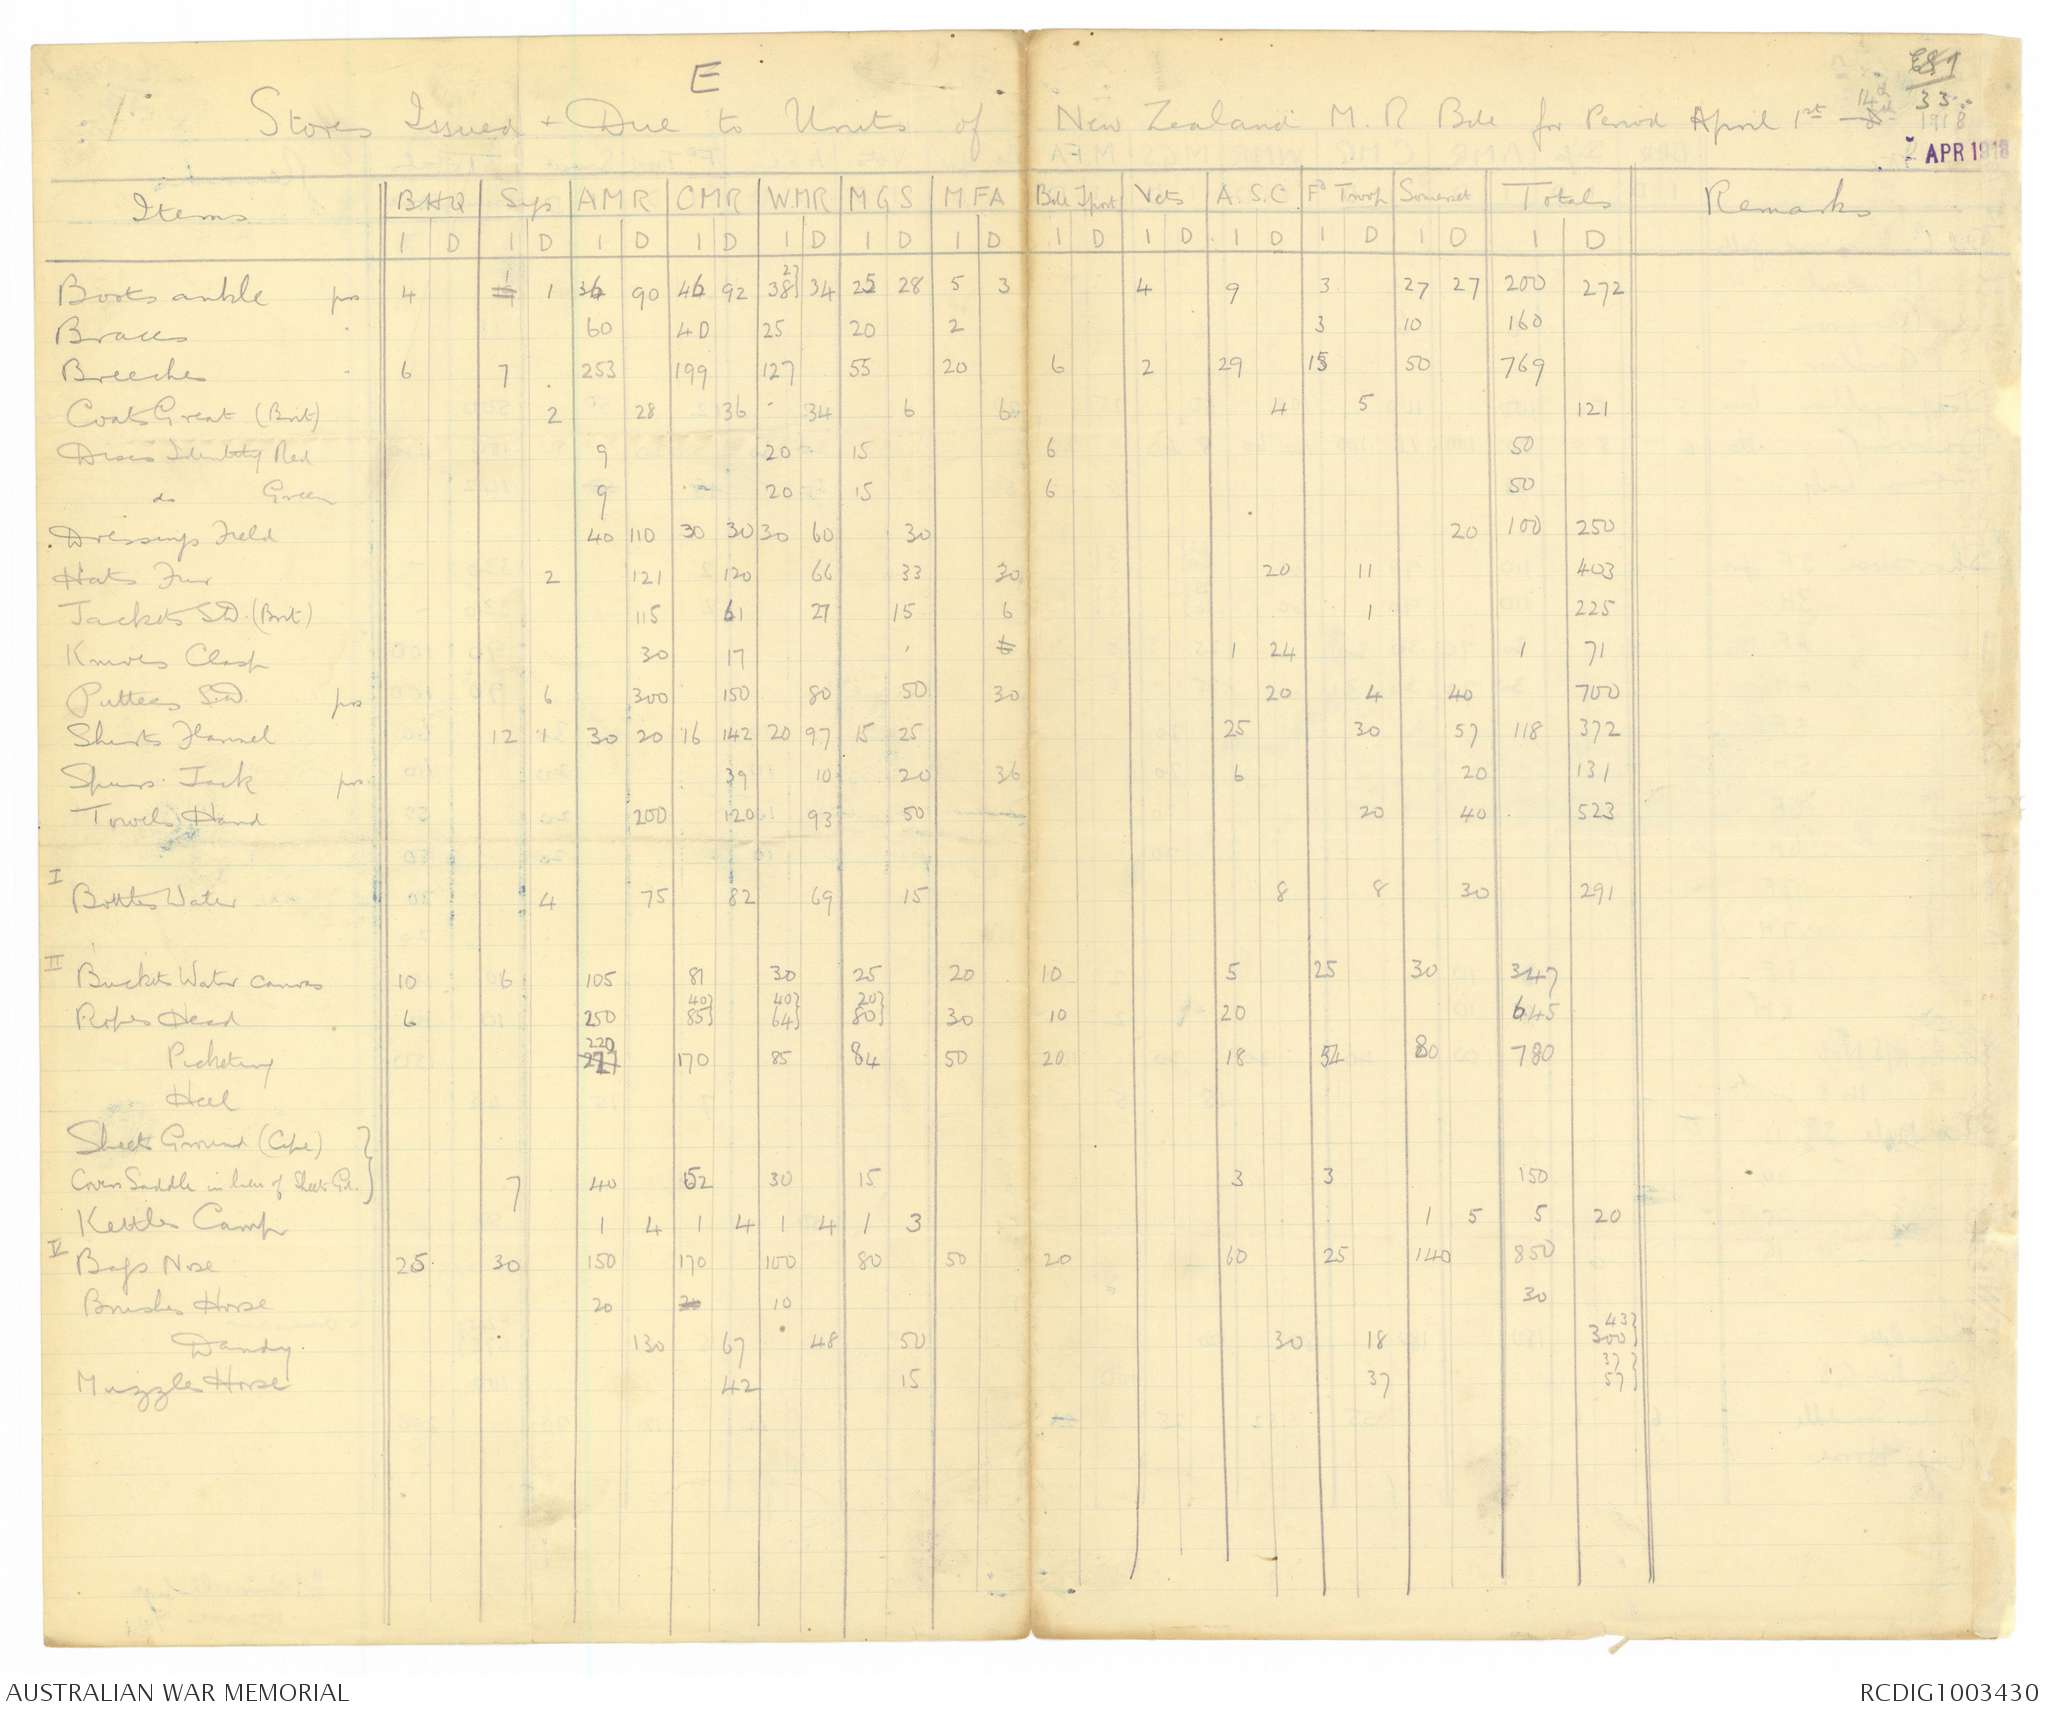 E
Stores Issued + Due to Units of New Zealand M. R Bde for Period April 1st 14th
33
1918
APR 1918
Items BHQ Sigs AMR CMR WMR MGS MFA Bde Tport Vets A.S.C Fd Troop Somerset Totals Remarks
I D I D I D I D I D I D I D I D I D I D I D I D I D
Boots ankle prs 4 1 1 36 90 46 92 27} 38} 34 25 28 5 3 4 9 3 27 27 200 272
Braces 60 40 25 20 2 3 10 160
Breeches 6 7 253 199 127 55 20 6 2 29 15 50 769
Coats Great (Brit) 2 28 36 34 6 6 4 5 121
Discs Identity Red 9 20 15 6 50
do Green 9 20 15 6 50
Dressings Field 40 110 30 30 30 60 30 20 100 250
Hats Fur 2 121 120 66 33 30 20 11 403
Jackets S.D. (Brit) 115 61 27 15 6 1 225
Knives Clasp 30 17 1 24 1 71
Puttees S.D. prs 6 300 150 80 50 30 20 4 40 700
Shirts Flannel 12 1 30 20 16 142 20 97 15 25 25 30 57 118 372
Spurs Jack prs 39 10 20 36 6 20 131
Towels Hand 200 120 93 50 20 40 523
I
Bottles Water 4 75 82 69 15 8 8 30 291
II
Buckets Water canvas 10 6 105 81 30 25 20 10 5 25 30 347
Ropes Head 6 250 40} 85} 40} 64} 20} 80} 30 10 20 645
Picketing 220 170 85 84 50 20 18 54 80 780
Heel
Sheets Ground (Cape) }
Covers Saddle in lieu of Sheets Gd. } 7 40 52 30 15 3 3 150
Kettles Camp 1 4 1 4 1 4 1 3 1 5 5 20
V
Bags Nose 25 30 150 170 100 80 50 20 60 25 140 850
Brushes Horse 20 20 10 30
Dandy 130 67 48 50 30 18 43} 300}
Muzzles Horse 42 15 37 37} 57}
AUSTRALIAN WAR MEMORIAL
RCDIG1003430